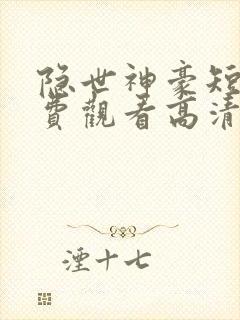 隐世神豪短
費觀看高清
湮十七